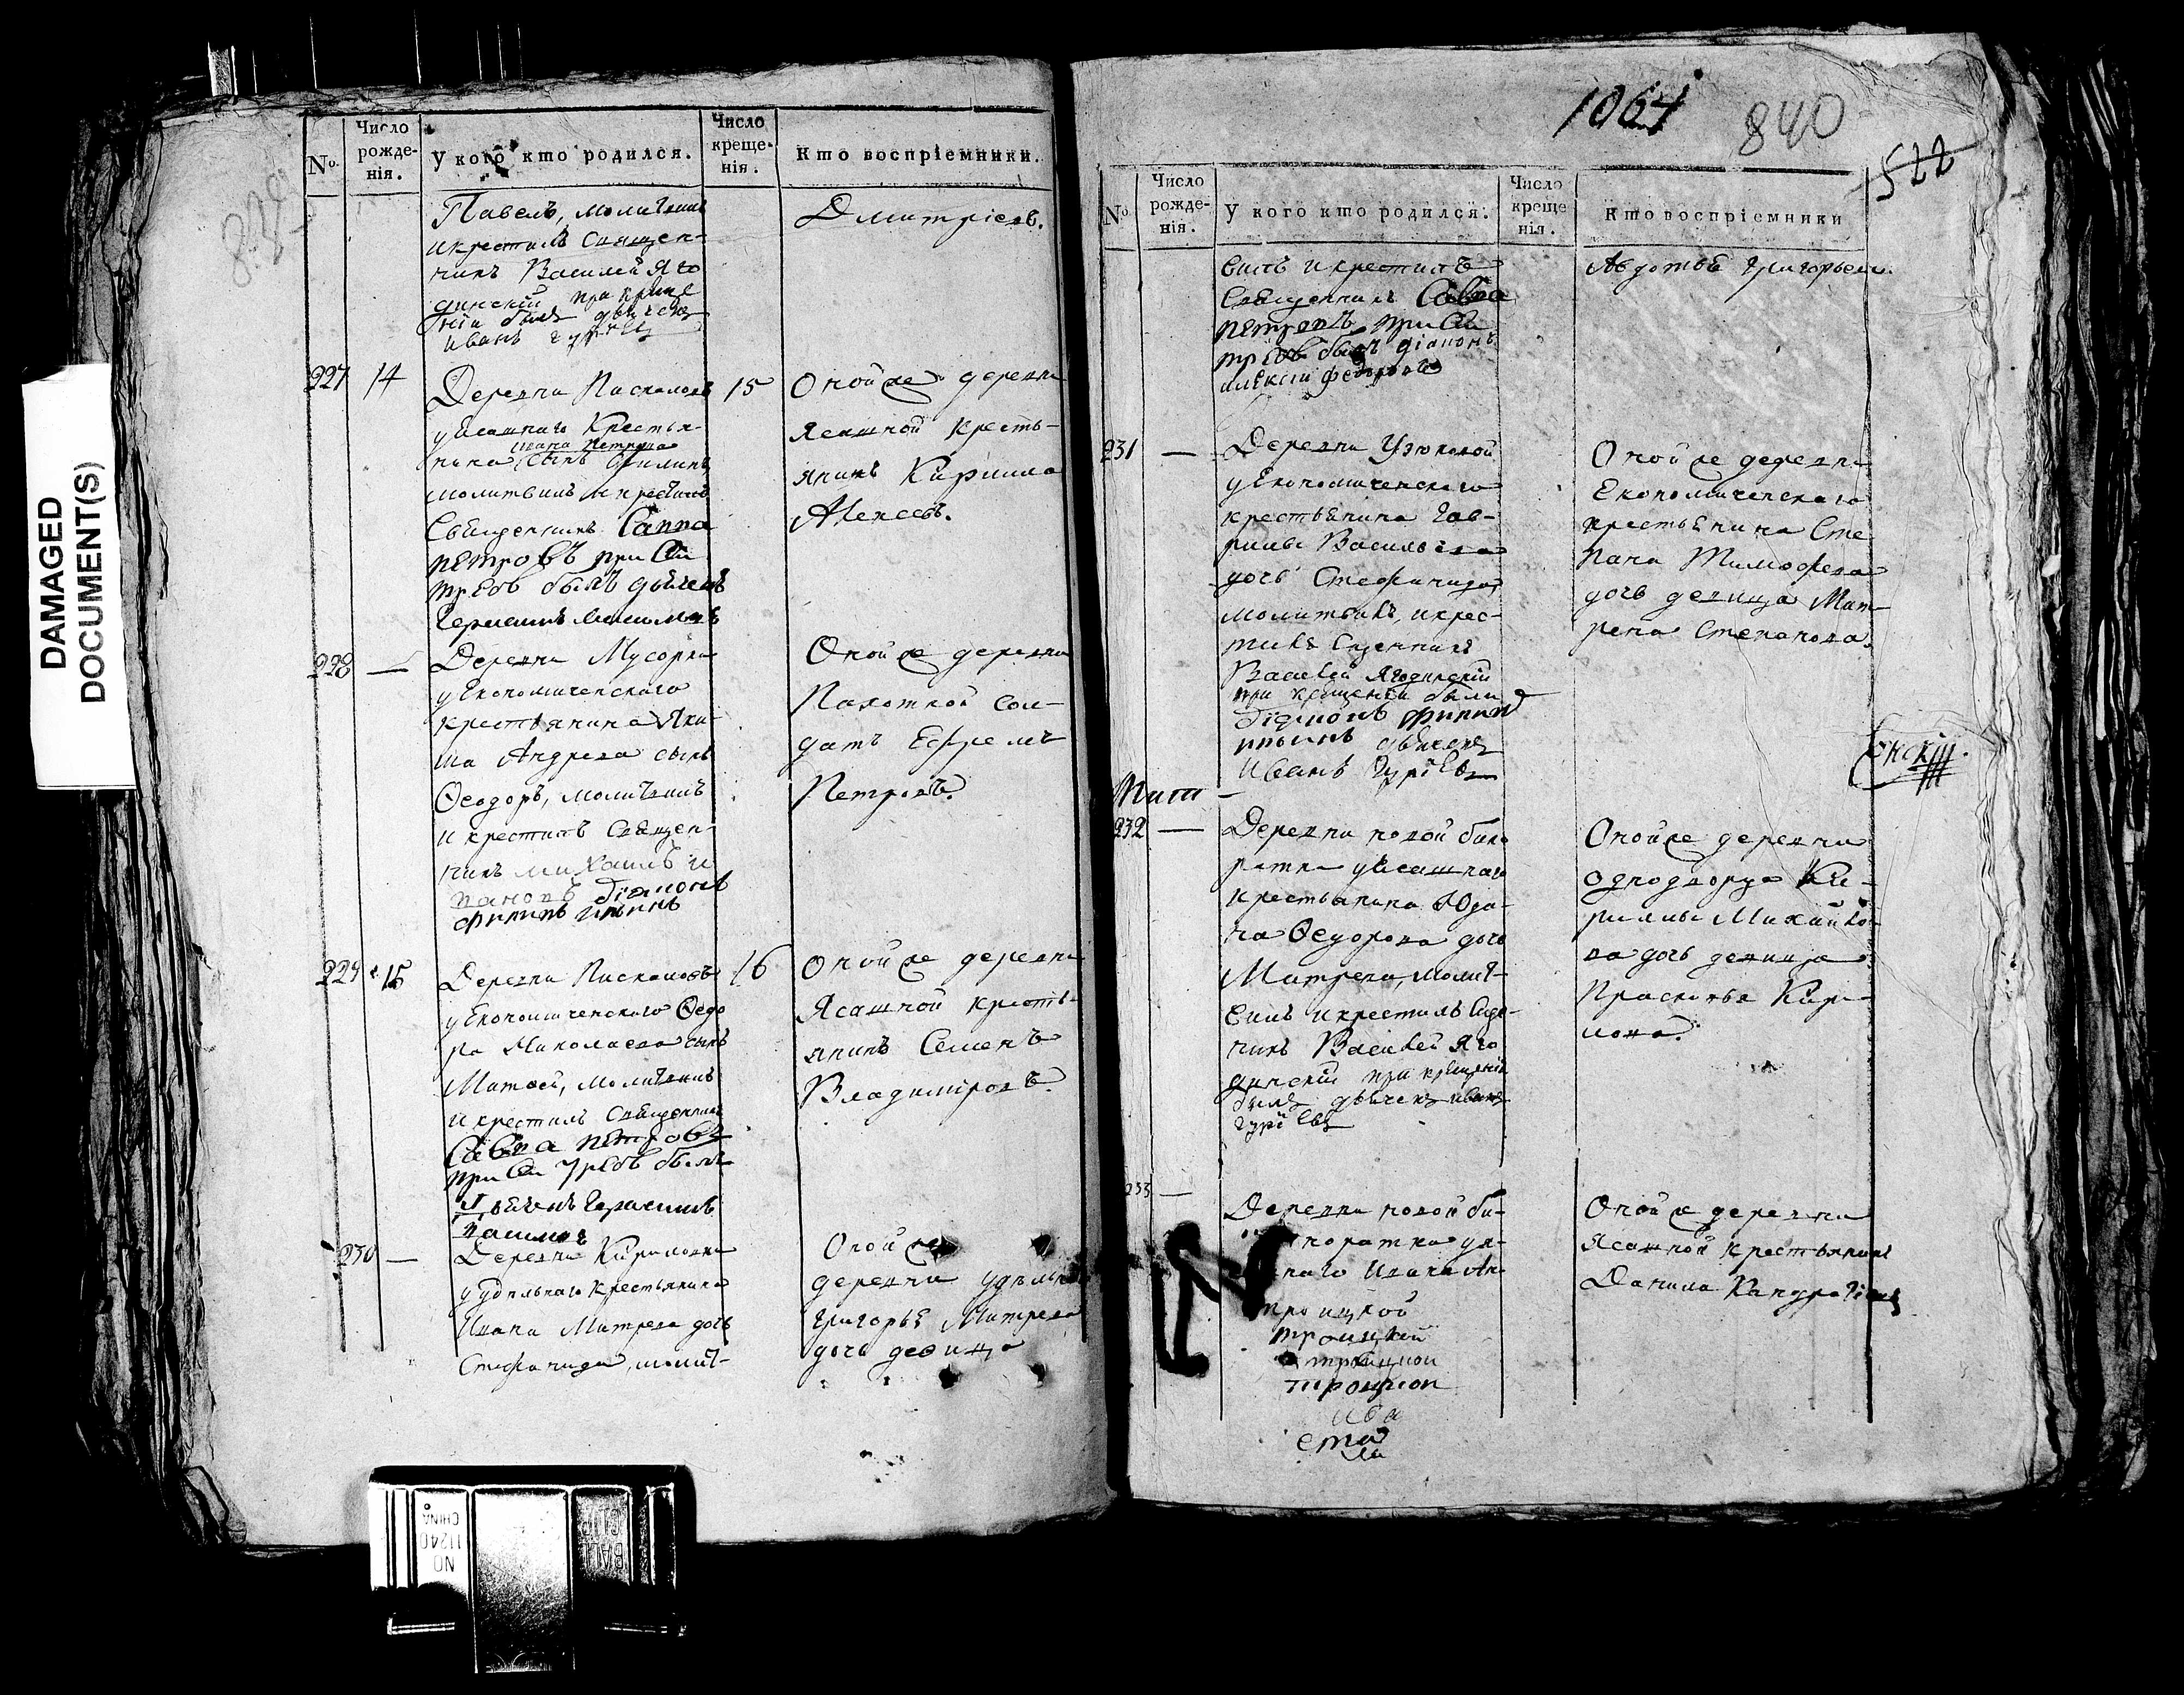 DAMAGED
DOCUMENT(S)
№
Число рожде-нія.
У кого кто родился.
Число креще-нія.
Кто воспріемники.
Павелъ, молитвилъ
и крестилъ Священ-
никъ Василей Яго
динскій при креще
ніи былъ дьячекъ
иванъ гурїевъ
Дмитріевъ.
227 14
Деревни Пискаловъ
у Ясашнаго Крестья-
нина Ивана Петрова
сынъ
молитвилъ и крестилъ
Священникъ Савва
петровъ при сей
требѣ былъ дьячекъ
15
Оной же деревни
Ясашной Кресть-
янинъ Кирилла
Алексеевъ.
228 —
Деревни Мусорки
у Економическаго
крестьянина Яки-
ма Андреева сынъ
Ѳеодоръ, молитвилъ
и крестилъ Священ-
никъ михаилъ и
вановъ діаконъ
филипъ ильинъ
Оной же деревни
Пахотной сол-
датъ Ефремъ
Петровъ.
229 15
Деревни Пискаловъ
у Економическаго Ѳедо
ра Николаева сынъ
Матвей, молитвилъ
и крестилъ Священникъ
Савва петровъ
при сей требѣ былъ
16
Оной же деревни
Ясашной кресть-
янинъ Семенъ
Владиміровъ.
230 —
Деревни Кириловки
у удѣльнаго крестьянина
Ивана Митрева дочь
Стефанида, молит-
Оной же
деревни
григорья Митрева
дочь девица
1064
840
522
№
Число рожде-нія.
У кого кто родился.
Число креще нія.
Кто воспріемники
вилъ и крестилъ
Священникъ Савва
петровъ при сей
требѣ былъ діаконъ
алексій федоровъ
Авдотья Григорьева.
231 —
Деревни Узюковой
у Економическаго
крестьянина Гав-
рилы Васильева
дочь Стефанида,
молитвилъ, и крес-
тилъ Священникъ
Василей Ягодинскій
при крещеніи были
діаконъ филипъ
ильинъ дьячекъ
Иванъ Гурїевъ
Оной же деревни
Економическаго
крестьянина Сте
пана Тимофеева
дочь девица Мат-
рена Степанова.
232 —
Деревни новой бина
ратки у Ясашнаго
крестьянина
Ѳедорова дочь
Матрена, молит-
вилъ и крестилъ Свяще-
никъ Василей Яго
динскій при крещеніи
былъ дьячекъ иванъ
гурїевъ
Оной же деревни
однодворца Ки-
рилы Михайло-
ва дочь девица
Прасковья Кири-
лова.
233 —
Деревни новой би-
наратки уя-
шнаго Ивана Ан-
троицкой
троицкой
троицкой
троицкой
Оной же деревни
Ясашной крестьянинъ
Данила Кандратьевъ
NO
11240
CHINA